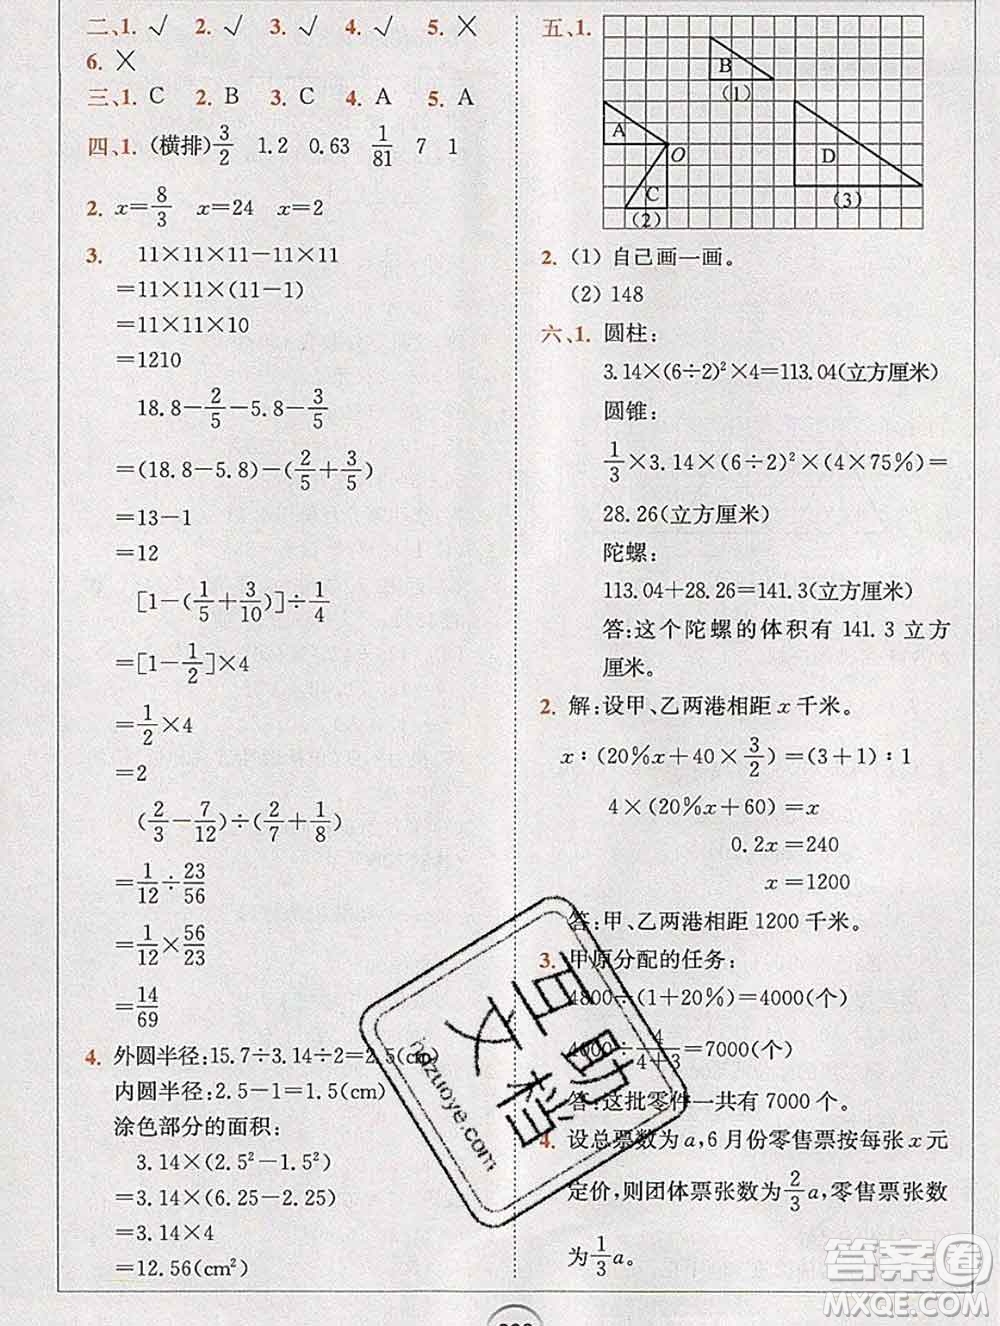 二、1. √ 2. √ 3. √ 4. √ 5. ×
6. ×
三、1. C 2. B 3. C 4. A 5. A
四、1. (横排) 3/2 1.2 0.63 1/81 7 1
2. x=8/3 x=24 x=2
3. 11×11×11-11×11
=11×11×(11-1)
=11×11×10
=1210
18.8-2/5-5.8-3/5
=(18.8-5.8)-(2/5+3/5)
=13-1
=12
[1-(1/5+3/10)]÷1/4
=[1-1/2]×4
=1/2×4
=2
(2/3-7/12)÷(2/7+1/8)
=1/12÷23/56
=1/12×56/23
=14/69
4. 外圆半径:15.7÷3.14÷2=2.5(cm)
内圆半径:2.5-1=1.5(cm)
涂色部分的面积:
3.14×(2.5²-1.5²)
=3.14×(6.25-2.25)
=3.14×4
=12.56(cm²)
五、1.
B
(1)
A
O
D
C
(2)
(3)
2. (1) 自己画一画。
(2) 148
六、1. 圆柱:
3.14×(6÷2)²×4=113.04(立方厘米)
圆锥:
1/3×3.14×(6÷2)²×(4×75%)=
28.26(立方厘米)
陀螺:
113.04+28.26=141.3(立方厘米)
答:这个陀螺的体积有 141.3 立方
厘米。
2. 解:设甲、乙两港相距 x 千米。
x:(20%x+40×3/2)=(3+1):1
4×(20%x+60)=x
0.2x=240
x=1200
答:甲、乙两港相距 1200 千米。
3. 甲原分配的任务:
4800÷(1+20%)=4000(个)
4000÷4/4+3=7000(个)
答:这批零件一共有 7000 个。
4. 设总票数为 a,6 月份零售票按每张 x 元
定价,则团体票张数为 2/3 a,零售票张数
为 1/3 a。
百助文档
答案圈
MXQE.COM